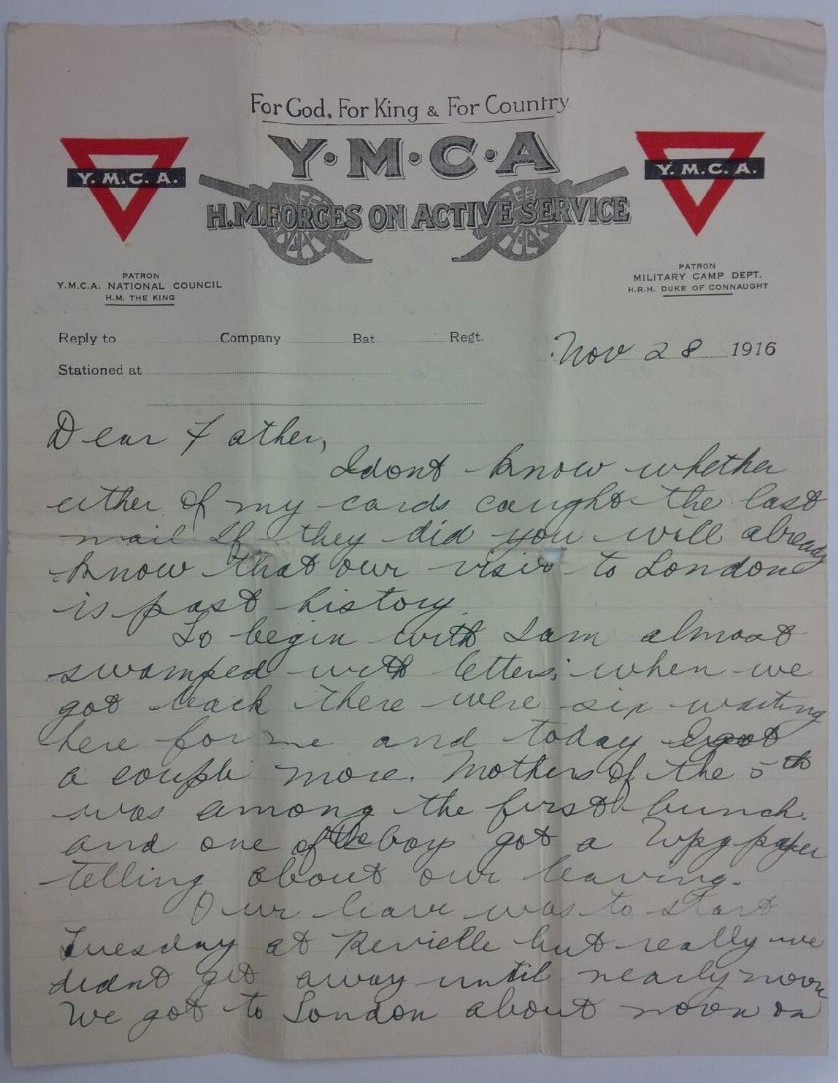 For God, For King & For Country
Y·M·C·A
H.M. FORCES ON ACTIVE SERVICE
Y. M. C. A.
Y. M. C. A.
PATRON
Y.M.C.A. NATIONAL COUNCIL
H.M. THE KING
PATRON
MILITARY CAMP DEPT.
H.R.H. DUKE OF CONNAUGHT
Reply to Company Bat. Regt.
Nov 28 1916
Stationed at
Dear Father,
I dont know whether
either of my cards caught the last
mail If they did you will already
know that our visit to London
is past history.
To begin with I am almost
swamped with letters; when we
got back there were six waiting
here for me and today I got
a couple more. Mothers of the 5th
was among the first bunch.
and one of the boys got a Wpg paper
telling about our leaving.
Our leave was to start
Tuesday at Revielle but really we
didnt get away until nearly noon
We got to London about noon on